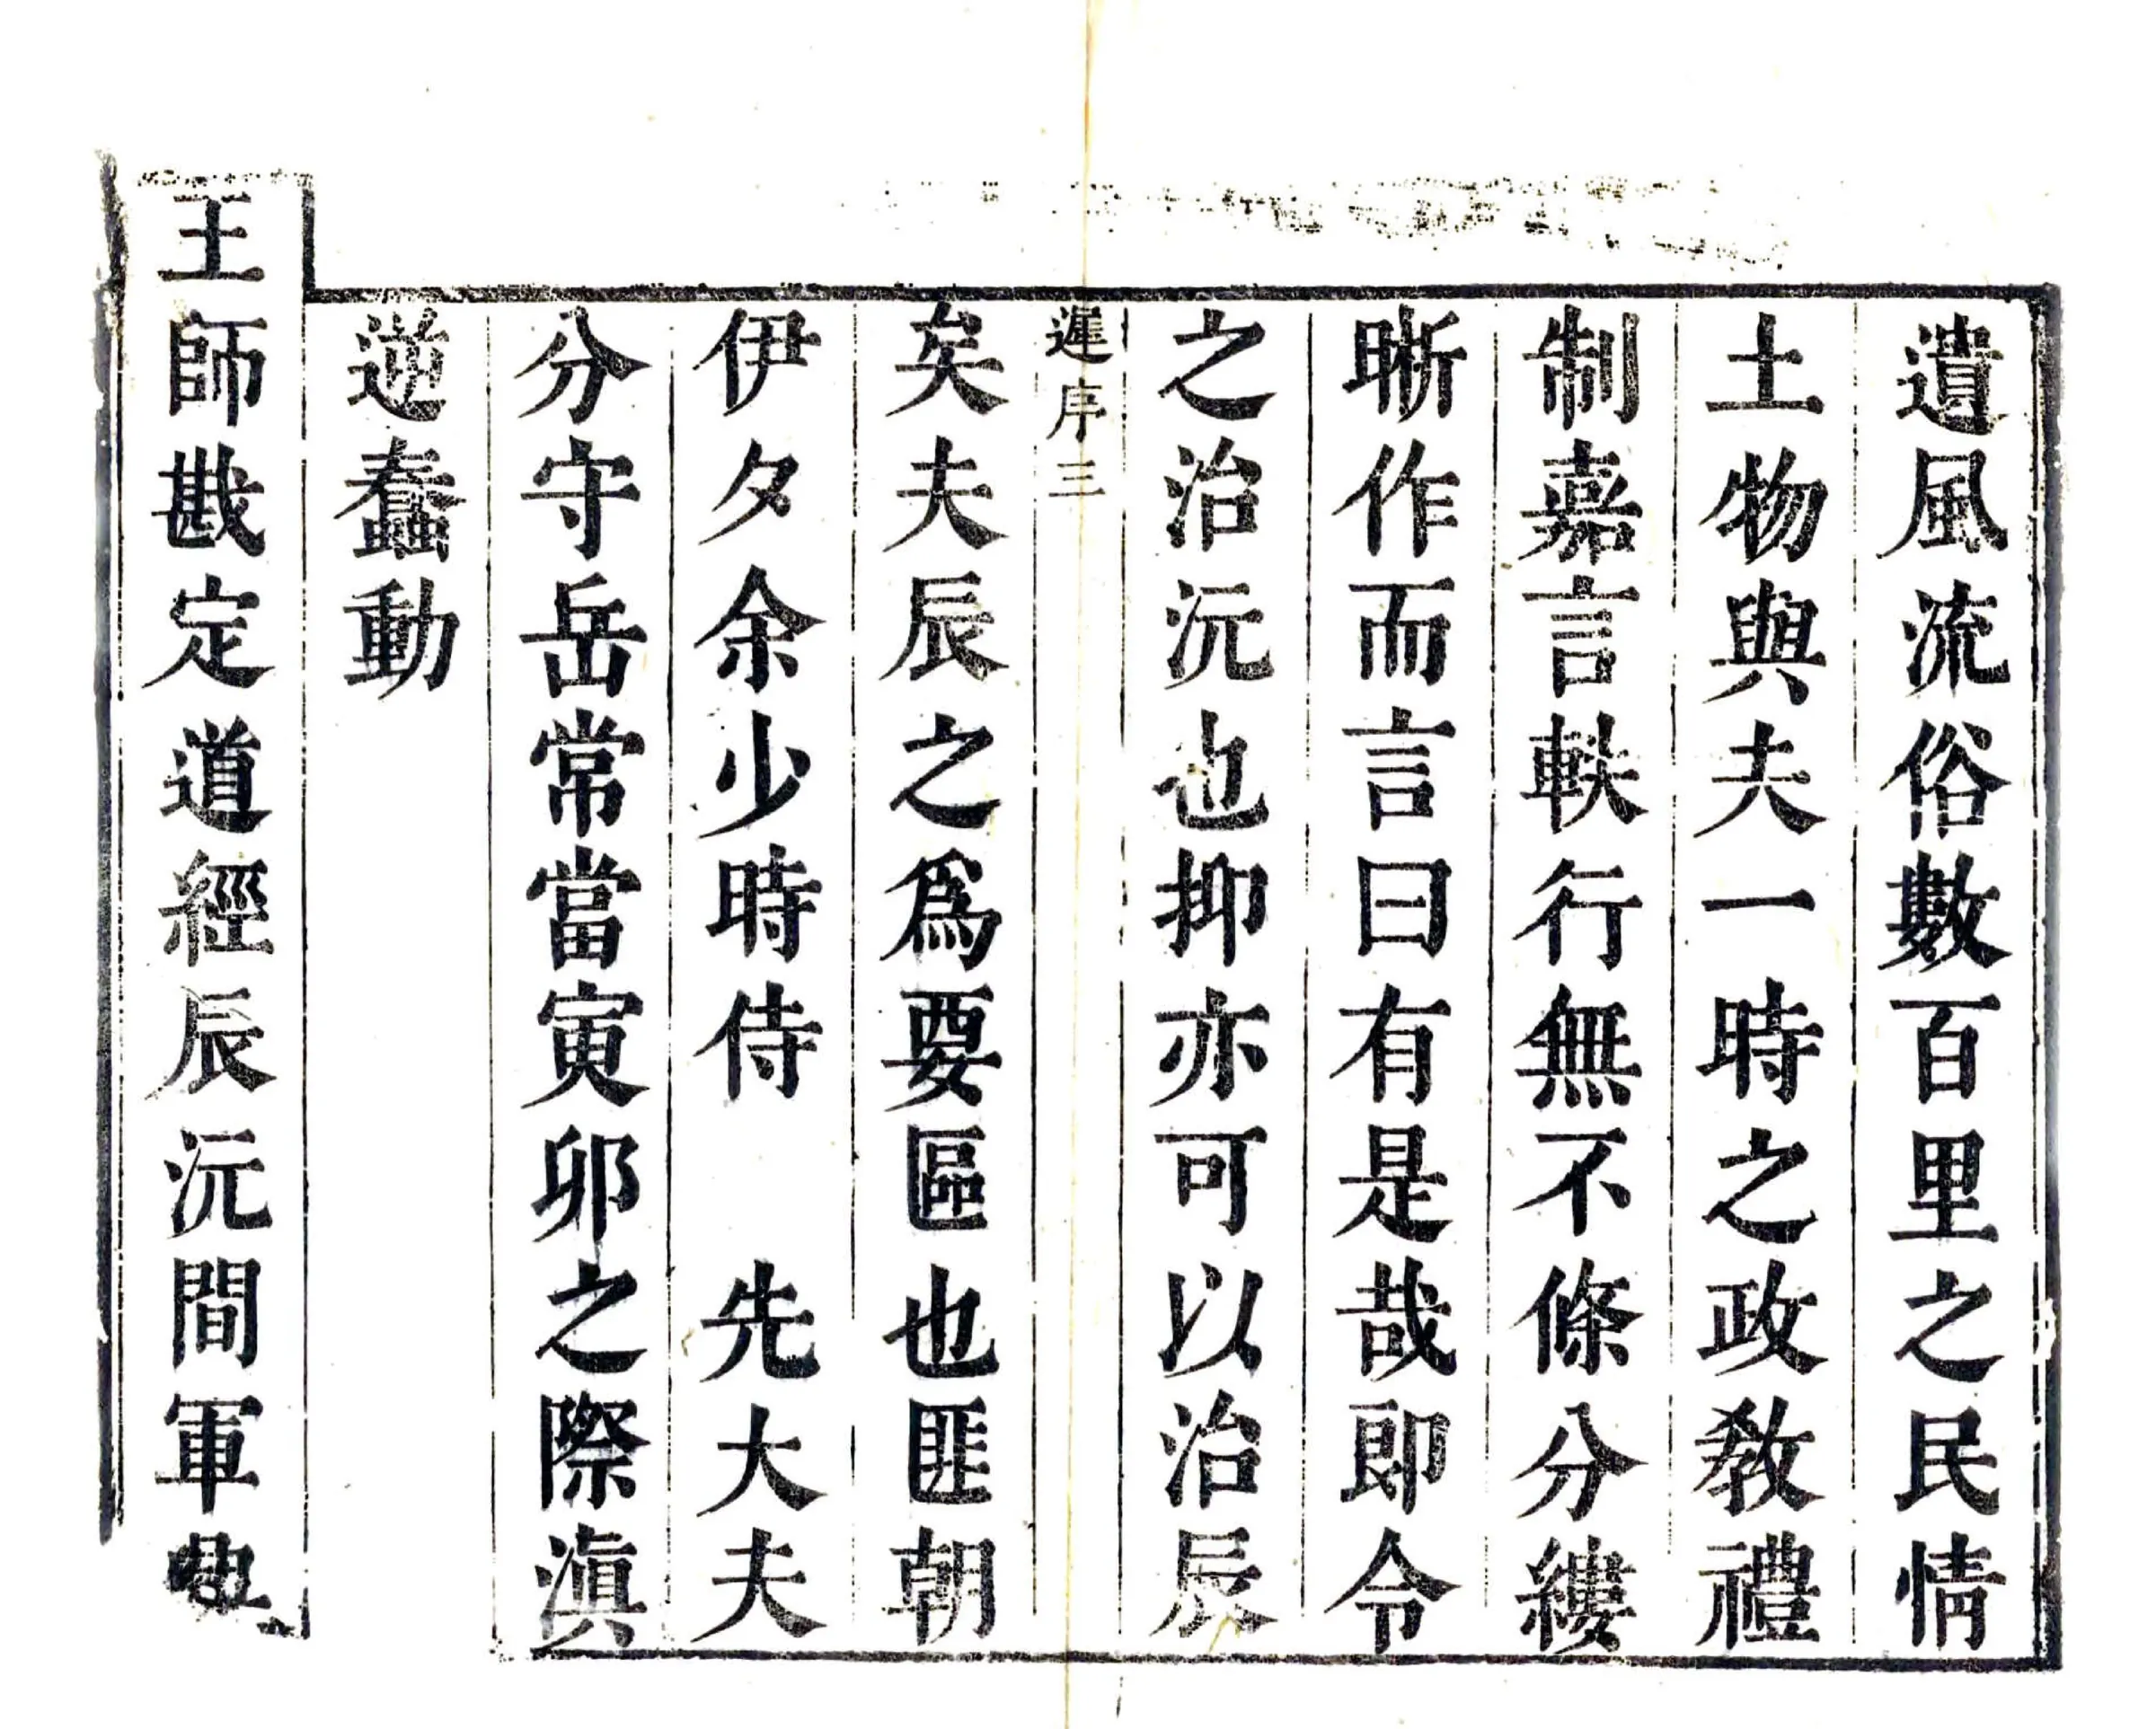 遺風流俗數百里之民情
土物與夫一時之政敎禮
制嘉言軼行無不條分縷
晣作而言曰有是哉即令
之治沅也抑亦可以治辰
遲序 三
矣夫辰之爲要區也匪朝
伊夕余少時侍 先大夫
分守岳常當寅卯之際滇
逆蠢動
王師戡定道經辰沅間軍